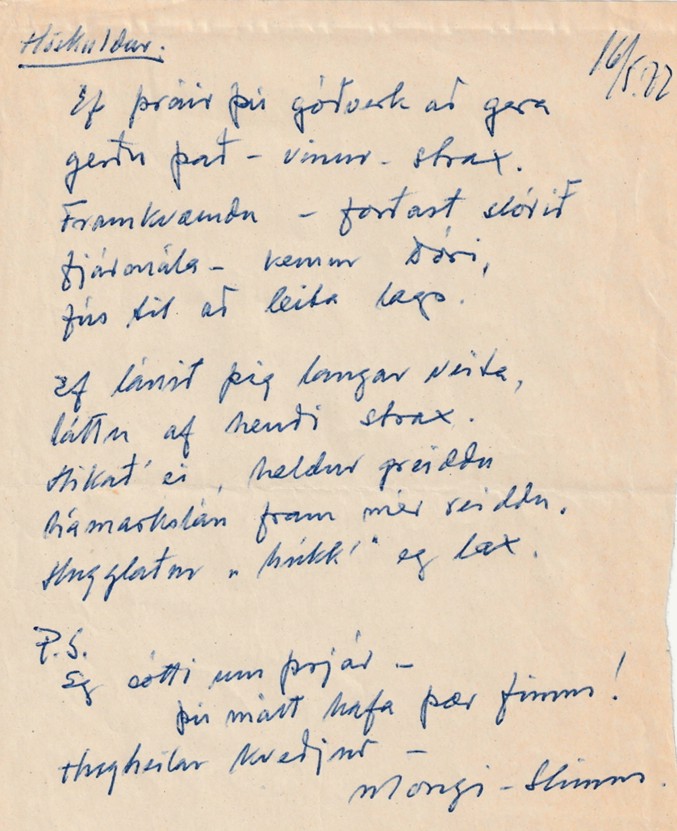 Höskuldur. 16/5.77
Ef þráir þú góðverk að gera
gerðu það - vinur - strax.
Framkvæmdu - forðast slórið
fjármála - kemur Dóri,
fús til að leita lags.
Ef lánið þig langar veita,
láttu af hendi strax.
Hikað' ei, heldur greiddu
hámarkslán fram mér reiddu.
Hugglaður „húkk'“ eg lax.
P.S.
Eg sótti um þrjár -
þú mátt hafa þær fimm!
Hugheilar kveðjur -